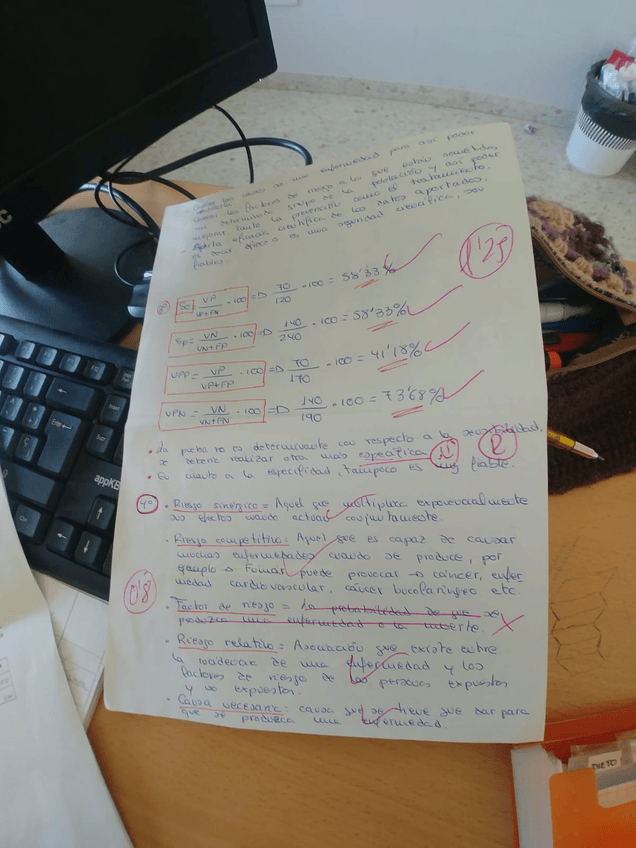 enfermedad para así poder
factores de riesgo a los que están sometidos
un determinado grupo de la población y así poder
mejorar tanto la prevención como el tratamiento.
- Aporta eficacia científica de los datos aportados,
es decir ofrece una seguridad científica, sea
fiable.
1'25
Se = VP / VP+FN · 100 => 70 / 120 · 100 = 58'33%
Sp = VN / VN+FP · 100 => 140 / 240 · 100 = 58'33%
VPP = VP / VP+FP · 100 => 70 / 170 · 100 = 41'18%
VPN = VN / VN+FN · 100 => 140 / 190 · 100 = 73'68%
• La prueba no es determinante con respecto a la sensibilidad,
se debería realizar otra más específica.
• En cuanto a la especifidad, tampoco es muy fiable.
R
4º
- Riesgo sinérgico = Aquel que multiplica exponencialmente
sus efectos cuando actúan conjuntamente.
- Riesgo competitivo: Aquel que es capaz de causar
muchas enfermedades cuando se produce, por
ejemplo → Fumar puede provocar → cáncer, enfer
medad cardiovascular, cáncer bucolaríngeo etc.
0'8
- Factor de riesgo = La probabilidad de que se
produzca una enfermedad o la muerte.
- Riesgo relativo = Asociación que existe entre
la incidencia de una enfermedad y los
factores de riesgo de las personas expuestas
y no expuestos.
- Causa necesaria: causa que se tiene que dar para
que se produzca una enfermedad.
appKB
DIETO